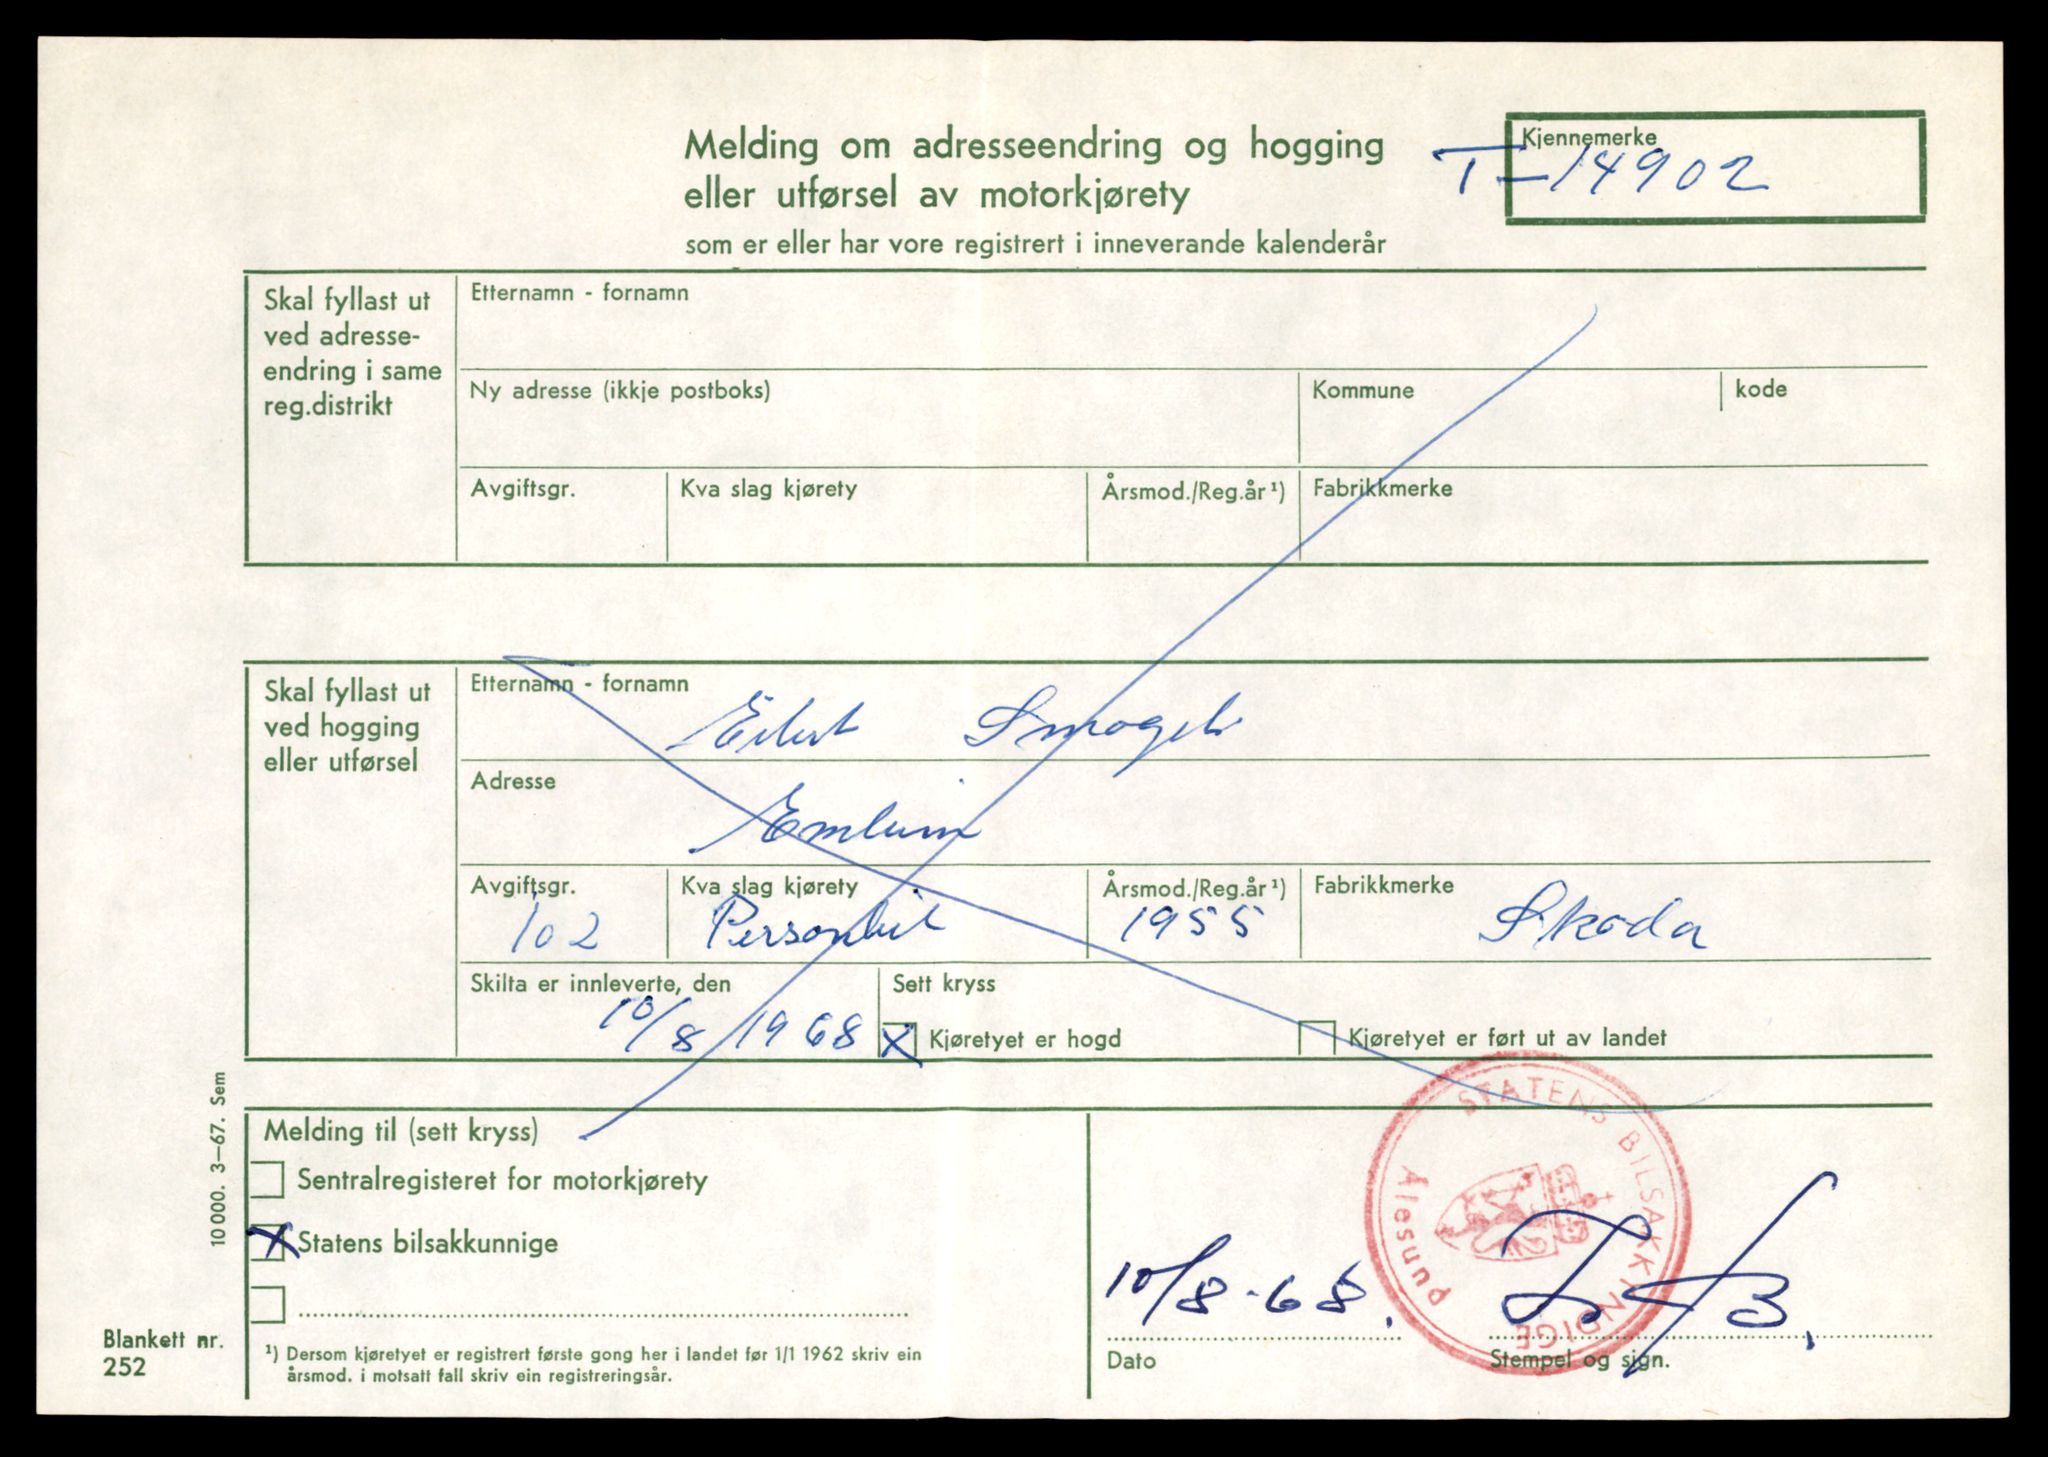 Melding om adresseendring og hogging
eller utførsel av motorkjørety
som er eller har vore registrert i inneverande kalenderår
Kjennemerke
T-14902
Skal fyllast ut
ved adresse-
endring i same
reg.distrikt
Etternamn - fornamn
Ny adresse (ikkje postboks)
Kommune
kode
Avgiftsgr.
Kva slag kjørety
Årsmod./Reg.år ¹)
Fabrikkmerke
Skal fyllast ut
ved hogging
eller utførsel
Etternamn - fornamn
Eilert
Adresse
Emblem
Avgiftsgr.
102
Kva slag kjørety
Personbil
Årsmod./Reg.år ¹)
1955
Fabrikkmerke
Skoda
Skilta er innleverte, den
10/8 1968
Sett kryss
X Kjøretyet er hogd
Kjøretyet er ført ut av landet
10 000. 3—67. Sem
Melding til (sett kryss)
Sentralregisteret for motorkjørety
X Statens bilsakkunnige
Blankett nr.
252
¹) Dersom kjøretyet er registrert første gong her i landet før 1/1 1962 skriv ein
årsmod. i motsatt fall skriv ein registreringsår.
10/8-68.
Dato
STATENS BILSAKKYNDIGE
Ålesund
Stempel og sign.